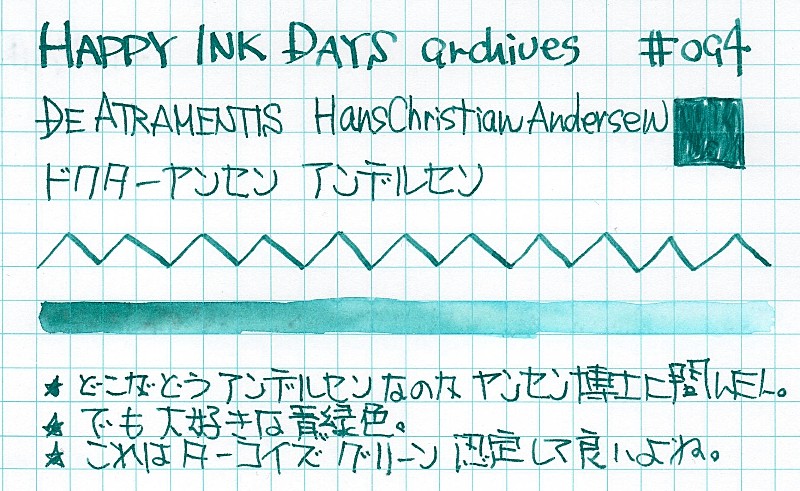 HAPPY INK DAYS archives #094
DE ATRAMENTIS HansChristianAndersen
ドクターヤンセン アンデルセン
★ どこがどうアンデルセンなのか ヤンセン博士に聞いてみたし。
★ でも大好きな青緑色。
★ これはターコイズグリーン認定して良いよね。